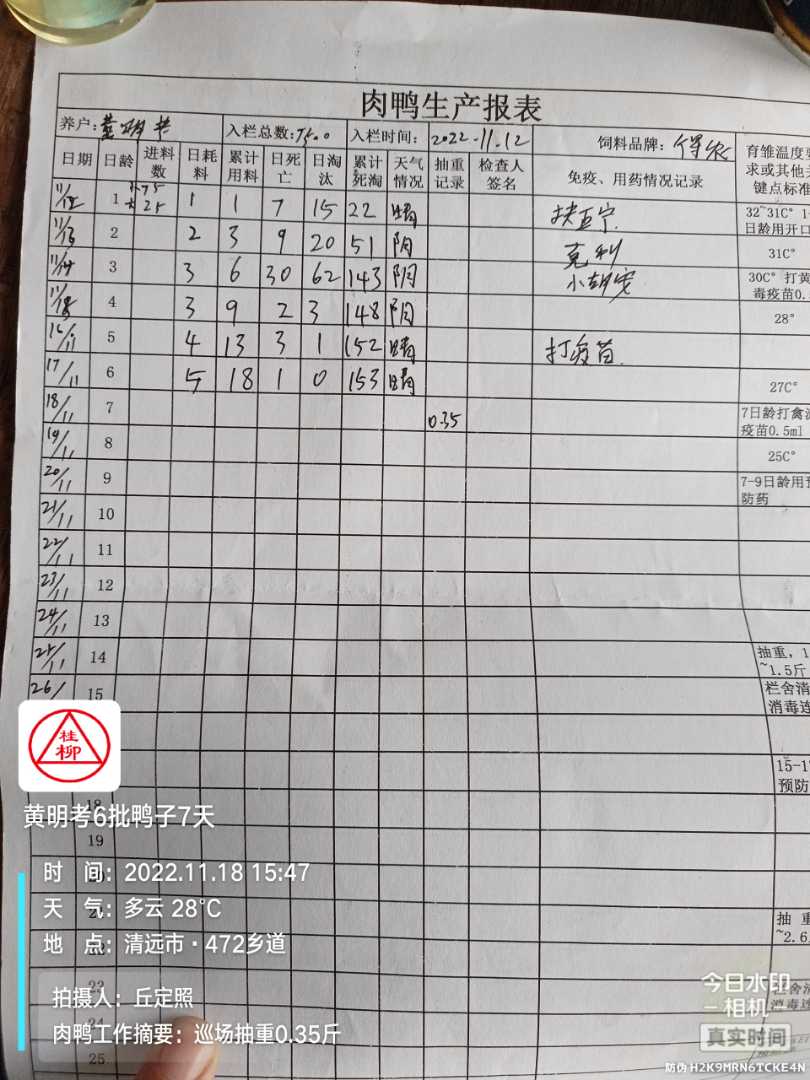 肉鸭生产报表
养户: 黄明考 入栏总数: 7500 入栏时间: 2022-11.12 饲料品牌:
日期 日龄 进料数 日耗料 累计用料 日死亡 日淘汰 累计死淘 天气情况 抽重记录 检查人签名 免疫、用药情况记录 育雏温度
求或其他
键点标准
11/12 1 大25 1 1 7 15 22 晴 32~31C° 1
日龄用开口
11/13 2 2 3 9 20 51 阴 克利 31C°
11/14 3 3 6 30 62 143 阴 30C° 打黄
毒疫苗0.
11/15 4 3 9 2 3 148 阴 28°
16/11 5 4 13 3 1 152 晴 打疫苗
17/11 6 5 18 1 0 153 晴 27C°
18/11 7 0.35 7日龄打禽
疫苗0.5ml
19/11 8 25C°
20/11 9 7-9日龄用
防药
21/11 10
22/11 11
23/11 12
24/11 13
25/11 14 抽重,1
~1.5斤
26/ 15 栏舍消
消毒连
桂
柳
15-1
预防
18
黄明考6批鸭子7天
19
时 间: 2022.11.18 15:47
天 气: 多云 28℃
抽 重
~2.6
地 点: 清远市·472乡道
23
拍摄人: 丘定照
今日水印
相机
24
肉鸭工作摘要: 巡场抽重0.35斤
真实时间
25
防伪 H2K9MRN6TCKE4N